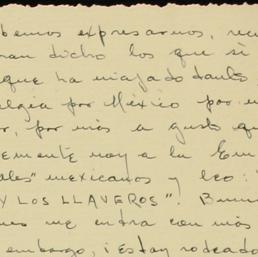 bemos expresarnos, recu
ran dicho los que si
que ha viajado tanto
algia por México por m
r, por más a gusto qu
emente voy a la Em
ales" mexicanos y leo: "
Y LOS LLAVEROS". Buen
me entra con más
embargo, ¡Estoy rodeado